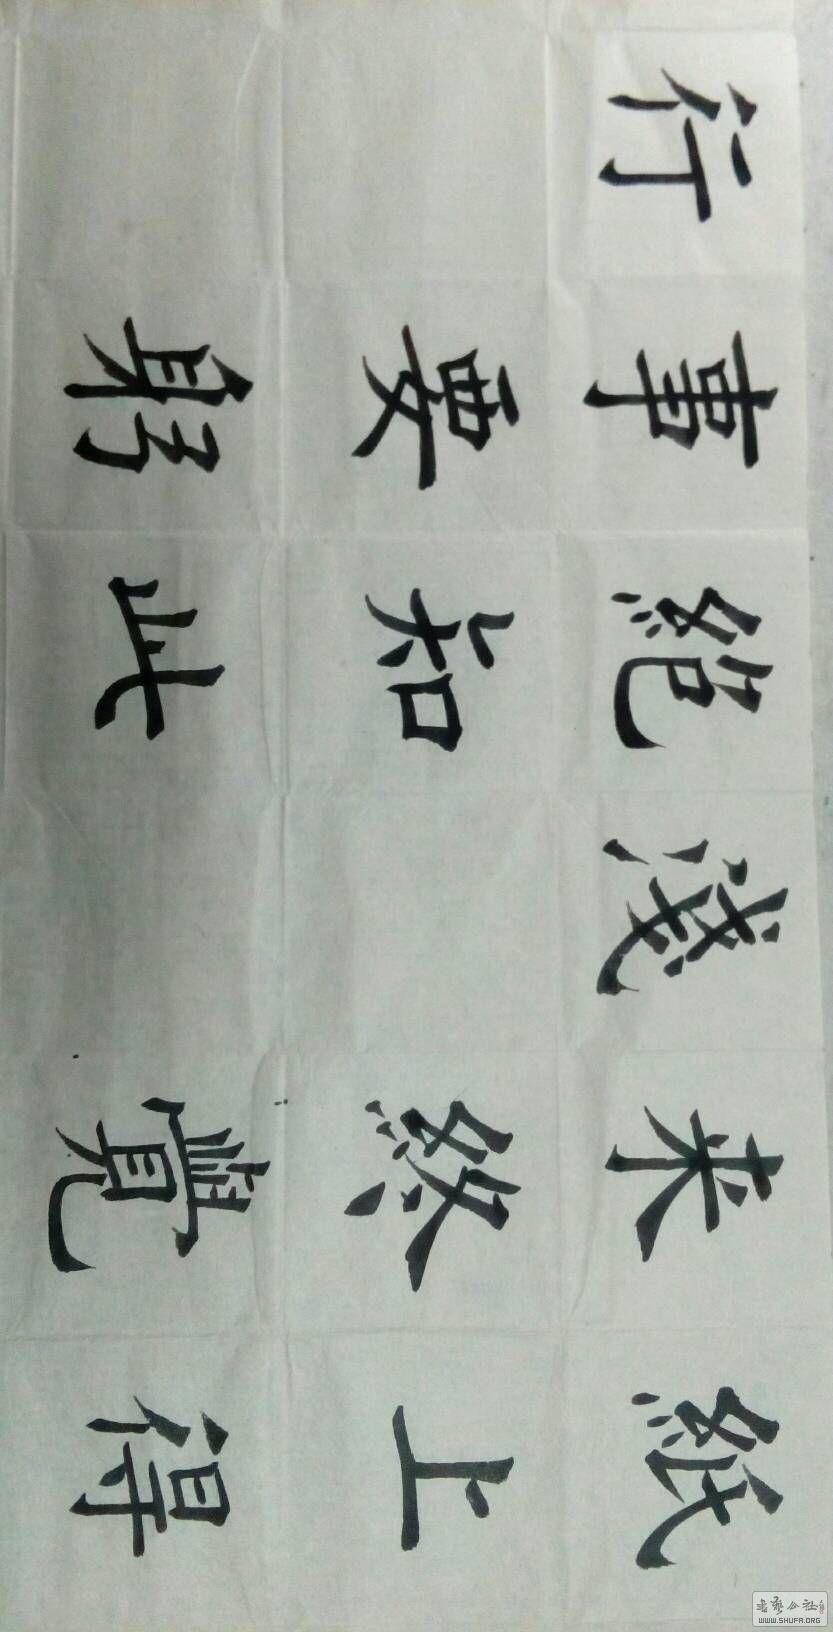 紙上得
来終覺
浅
絶知此
事要躬
行
書藝公社
WWW.SHUFA.ORG